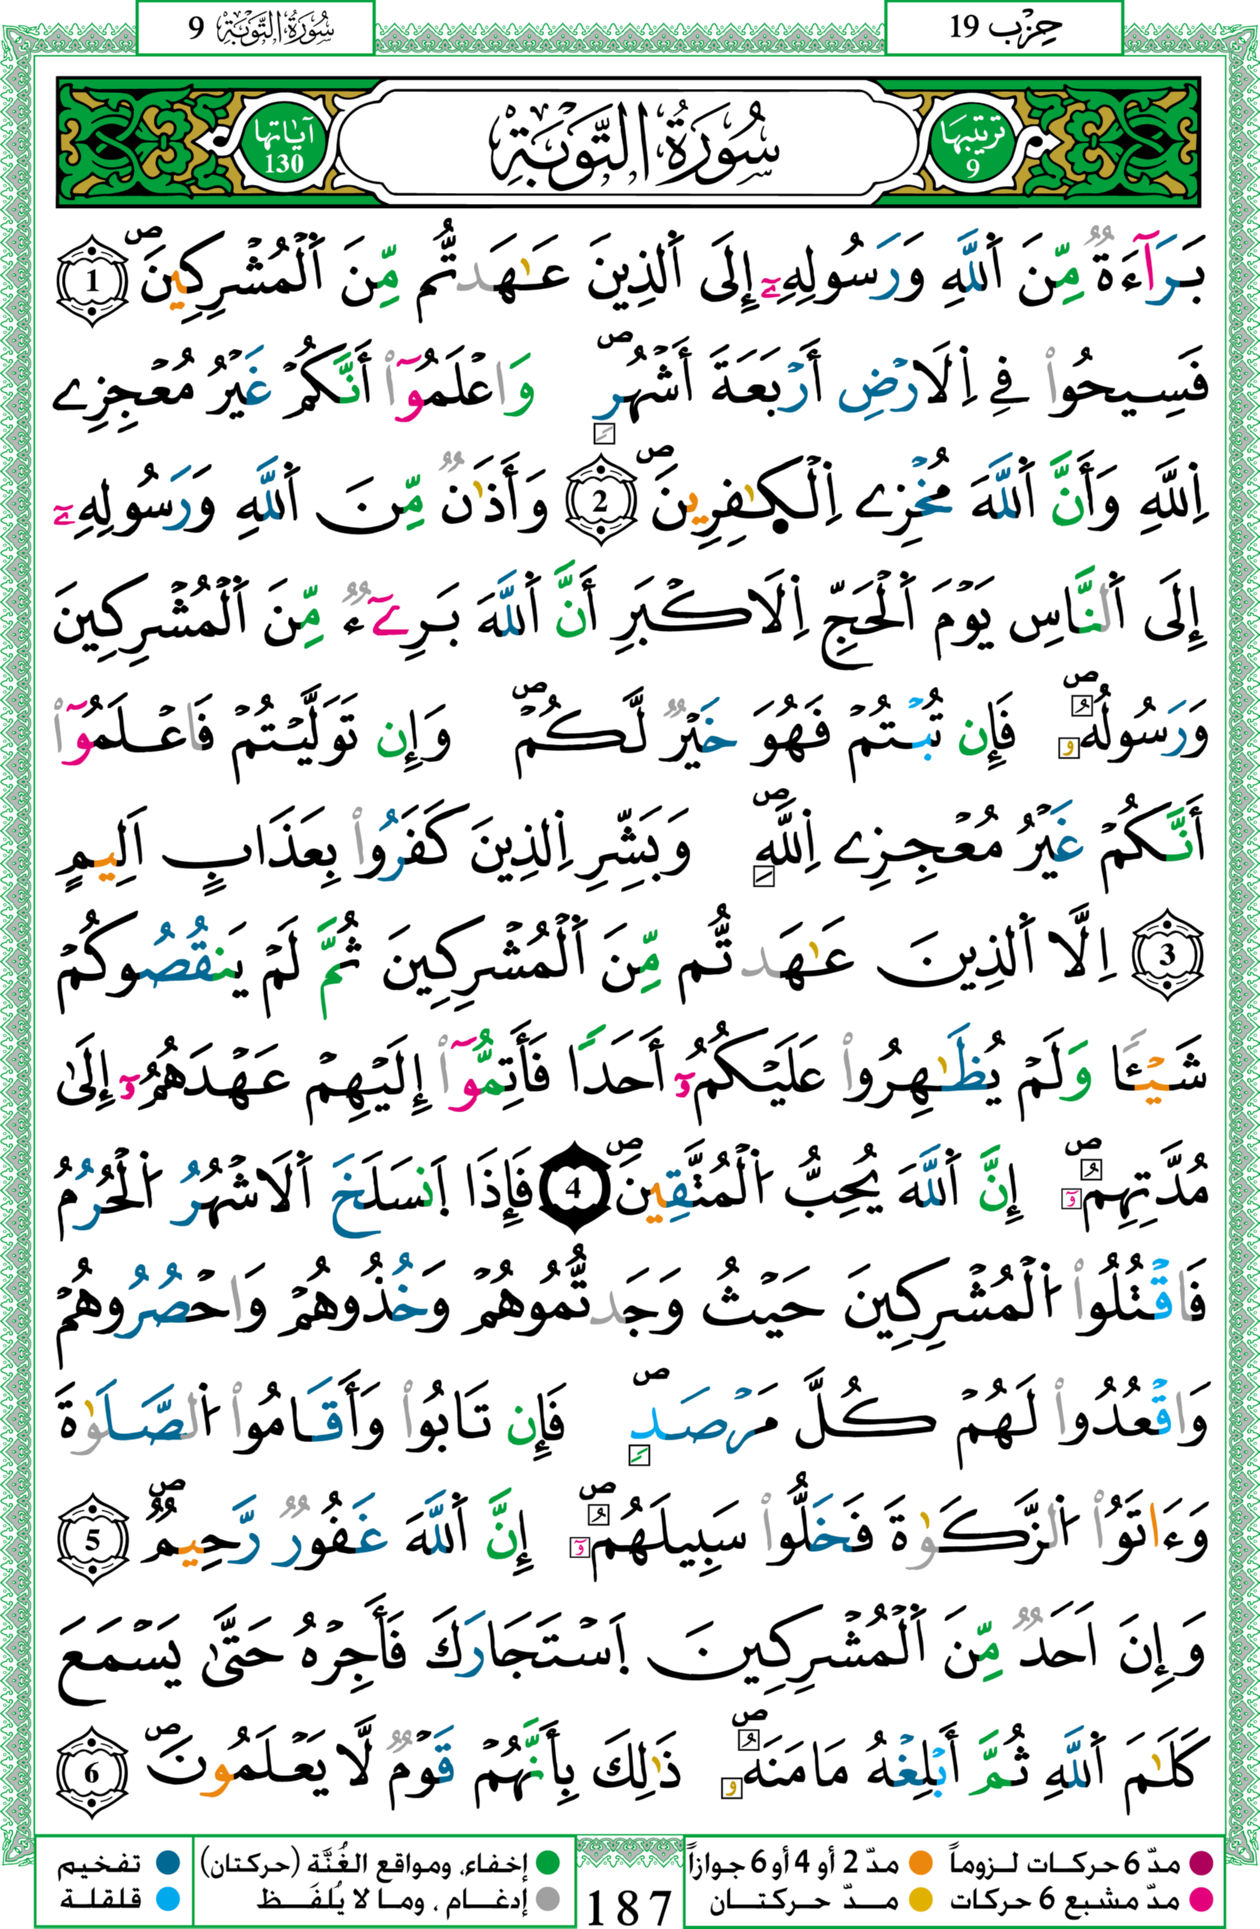 حِزْب 19
سُورَةُ التَّوْبَةِ 9
تَرتيبُهَا 9
سُورَةُ التَّوْبَةِ
آيَاتها 130
بَرَآءَةٌ مِّنَ اَ۬للَّهِ وَرَسُولِهِۦٓ إِلَى اَ۬لذِينَ عَٰهَدتُّم مِّنَ اَ۬لْمُشْرِكِينَۖ 1
فَسِيحُواْ فِے اِ۬لَارْضِ أَرْبَعَةَ أَشْهُرٖۖ وَاعْلَمُوٓاْ أَنَّكُمْ غَيْرُ مُعْجِزِے
اِ۬للَّهِ وَأَنَّ اَ۬للَّهَ مُخْزِے اِ۬لْكٰ۪فِرِينَۖ 2 وَأَذَٰنٌ مِّنَ اَ۬للَّهِ وَرَسُولِهِۦٓ
إِلَى اَ۬لنَّاسِ يَوْمَ اَ۬لْحَجِّ اِ۬لَاكْبَرِ أَنَّ اَ۬للَّهَ بَرِےٓءٌ مِّنَ اَ۬لْمُشْرِكِينَ
وَرَسُولُهُۥۖ فَإِن تُبْتُمْ فَهُوَ خَيْرٌ لَّكُمْۖ وَإِن تَوَلَّيْتُمْ فَاعْلَمُوٓاْ
أَنَّكُمْ غَيْرُ مُعْجِزِے اِ۬للَّهِۖ وَبَشِّرِ اِ۬لذِينَ كَفَرُواْ بِعَذَابٍ اَلِيمٍ
3 اِلَّا اَ۬لذِينَ عَٰهَدتُّم مِّنَ اَ۬لْمُشْرِكِينَ ثُمَّ لَمْ يَنقُصُوكُمْ
شَيْـٔاً وَلَمْ يُظَٰهِرُواْ عَلَيْكُمُۥٓ أَحَداً فَأَتِمُّوٓاْ إِلَيْهِمْ عَهْدَهُمُۥٓ إِلَىٰ
مُدَّتِهِمُۥٓۖ إِنَّ اَ۬للَّهَ يُحِبُّ اُ۬لْمُتَّقِينَۖ 4 فَإِذَا اَ۪نسَلَخَ اَ۬لَاشْهُرُ اُ۬لْحُرُمُ
فَاقْتُلُواْ اُ۬لْمُشْرِكِينَ حَيْثُ وَجَدتُّمُوهُمْ وَخُذُوهُمْ وَاحْصُرُوهُمْ
وَاقْعُدُواْ لَهُمْ كُلَّ مَرْصَدٖۖ فَإِن تَابُواْ وَأَقَامُواْ اُ۬لصَّلَوٰةَ
وَءَاتَوُاْ اُ۬لزَّكَوٰةَ فَخَلُّواْ سَبِيلَهُمُۥٓۖ إِنَّ اَ۬للَّهَ غَفُورٌ رَّحِيمٌۖ 5
وَإِنَ اَحَدٌ مِّنَ اَ۬لْمُشْرِكِينَ اَ۪سْتَجَارَكَ فَأَجِرْهُ حَتَّىٰ يَسْمَعَ
كَلَٰمَ اَ۬للَّهِ ثُمَّ أَبْلِغْهُ مَامَنَهُۥۖ ذَٰلِكَ بِأَنَّهُمْ قَوْمٌ لَّا يَعْلَمُونَۖ 6
مدّ 6 حركات لـزوماً مدّ 2 أو 4 أو 6 جوازاً
مدّ مشبع 6 حركات مـدّ حـركتـان
187
إخفاء، ومواقع الغُنَّة (حركتان) تفخيم
إدغـام ، ومـا لا يُلفَـظ قلقلة